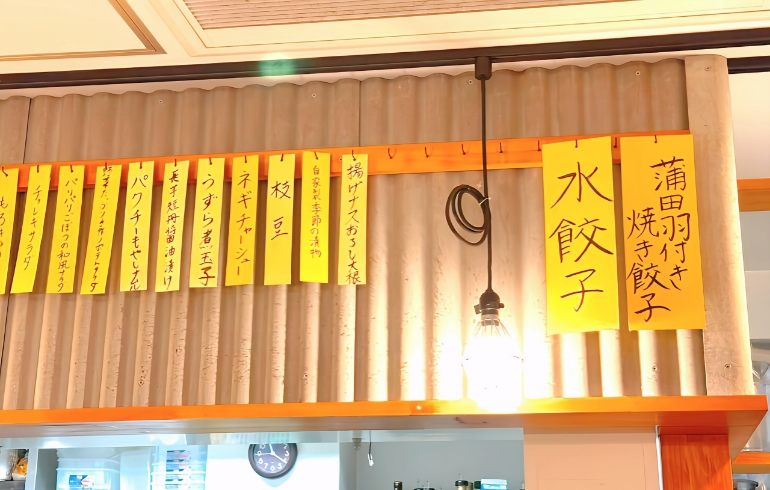 蒲田羽付き
焼き餃子
水餃子
揚げナスおろし大根
自家製季節の漬物
枝豆
ネギチャーシュー
うずら煮玉子
長芋短冊醤油漬け
パクチーもやしナムル
パリパリごぼうの和風サラダ
チョレギサラダ